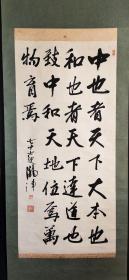 中也者天下大本也
和也者天下達道也
致中和天地位焉萬
物育焉